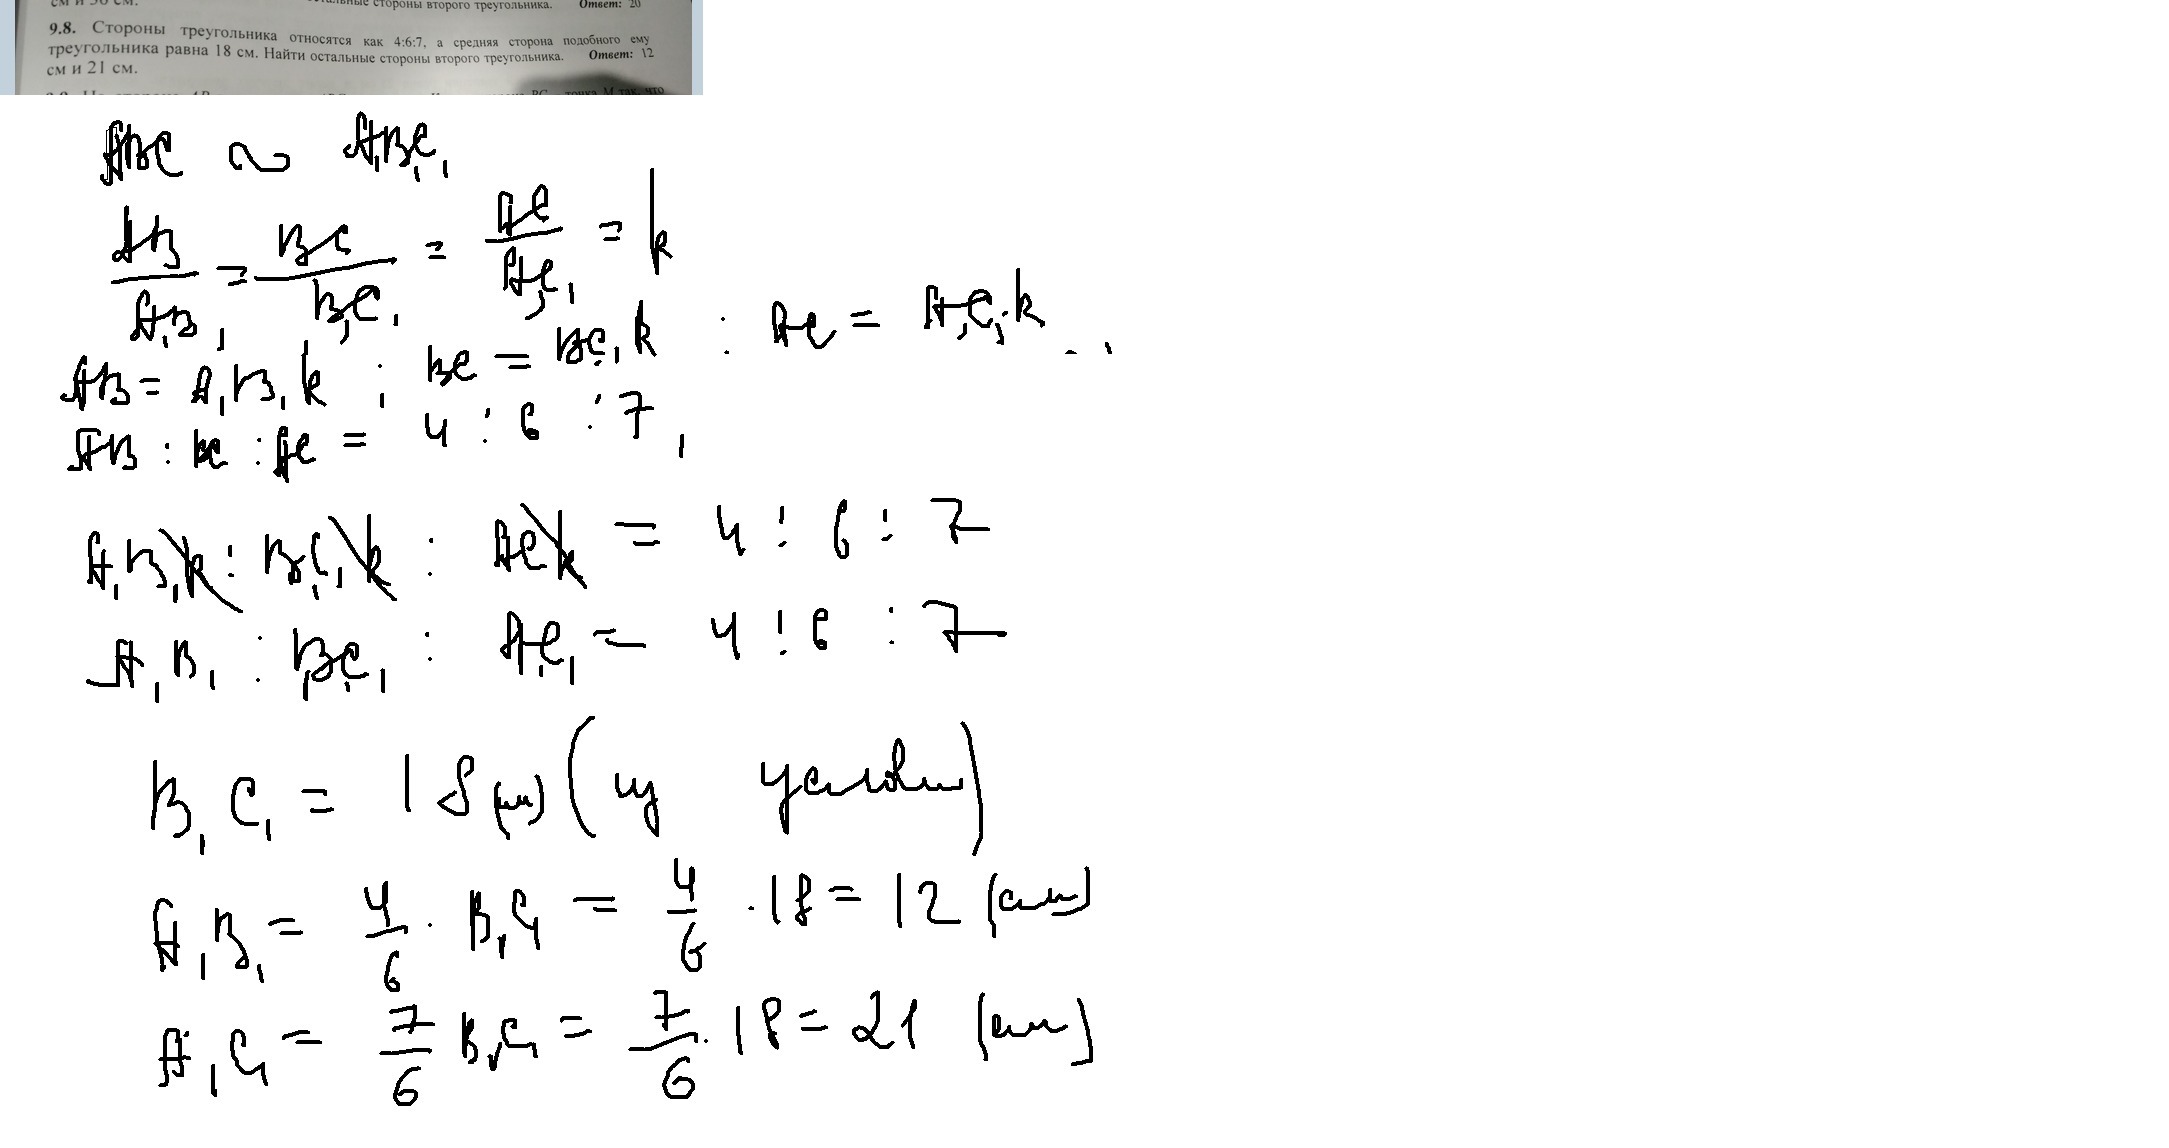 см и 30 см.
стальные стороны второго треугольника. Ответ: 20
9.8. Стороны треугольника относятся как 4:6:7, а средняя сторона подобного ему
треугольника равна 18 см. Найти остальные стороны второго треугольника. Ответ: 12
см и 21 см.
ABC ∾ A₁B₁C₁
AB/A₁B₁ = BC/B₁C₁ = AC/A₁C₁ = k
AB = A₁B₁k ; BC = B₁C₁k : AC = A₁C₁k
AB : BC : AC = 4 : 6 : 7,
A₁B₁k : B₁C₁k : ACk = 4 : 6 : 7
A₁B₁ : B₁C₁ : A₁C₁ = 4 : 6 : 7
B₁C₁ = 18 (см) (из условия)
A₁B₁ = 4/6 · B₁C₁ = 4/6 · 18 = 12 (см)
A₁C₁ = 7/6 B₁C₁ = 7/6 · 18 = 21 (см)